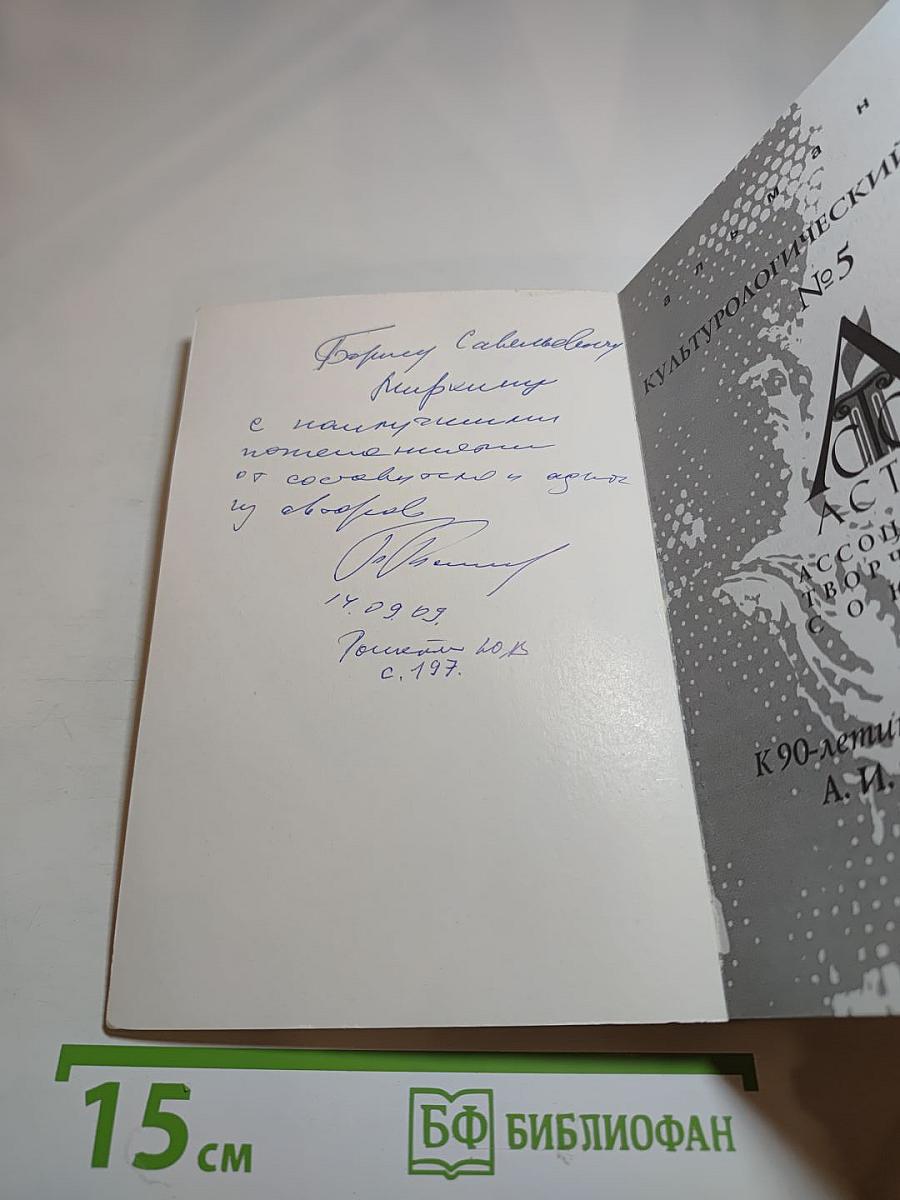 Борису Савельевичу
Миркину
с наилучшими
пожеланиями
от составителя и одного
из авторов
14.09.09.
Ю.В
с. 197.
альман
КУЛЬТУРОЛОГИЧЕСКИЙ
№5
АСТ
АССОЦ
ТВОРЧ
СОЮ
К 90-лети
А. И.
15 см
БФ БИБЛИОФАН